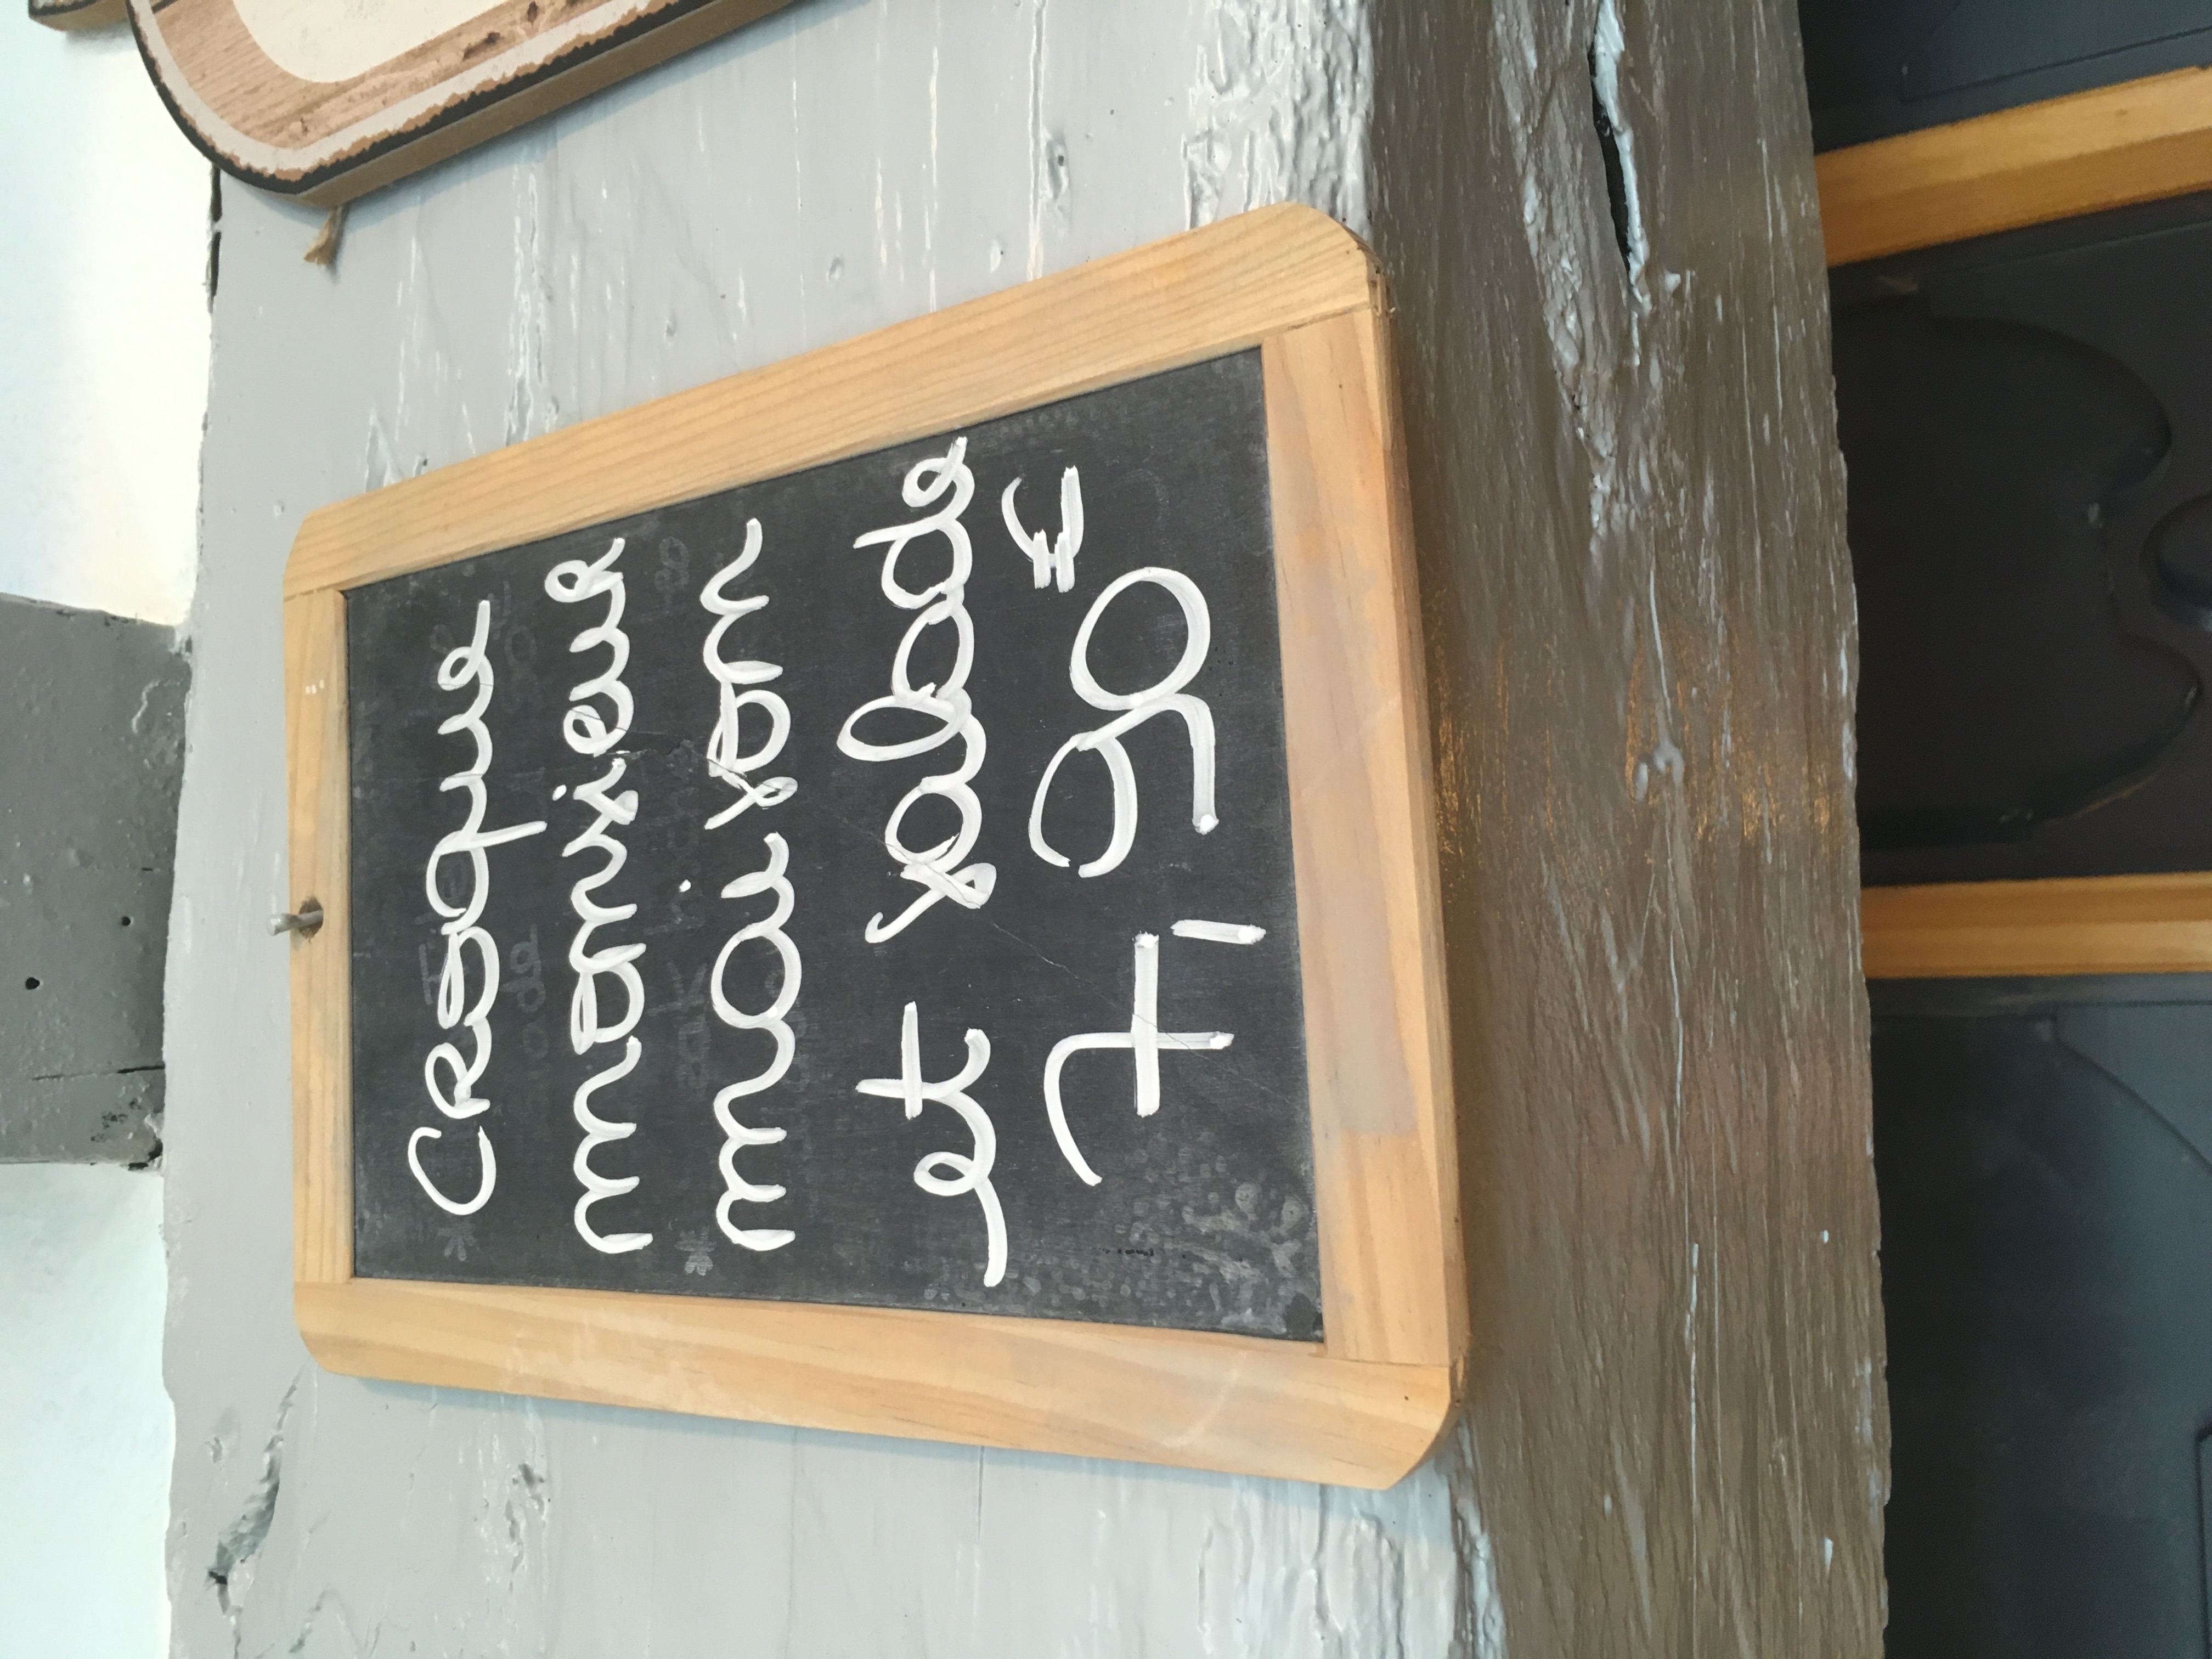 Croque
monsieur
maison
et salade
7,90€